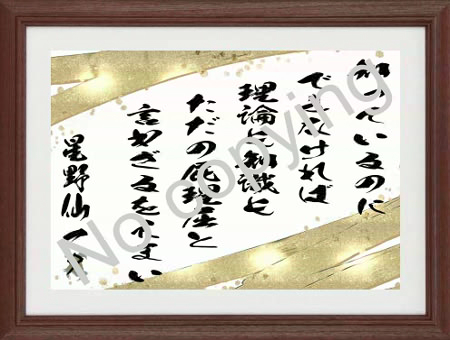 知っているのに
できなければ
理論も知識も
ただの屁理屈と
言わざるをえない
星野仙一
No copying